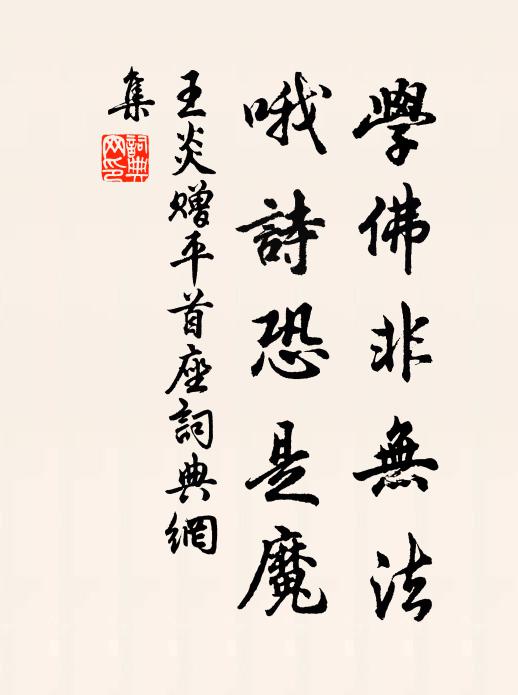 學佛非無法
哦詩恐是魔
王炎贈平首座詞典網
集
詞典網印